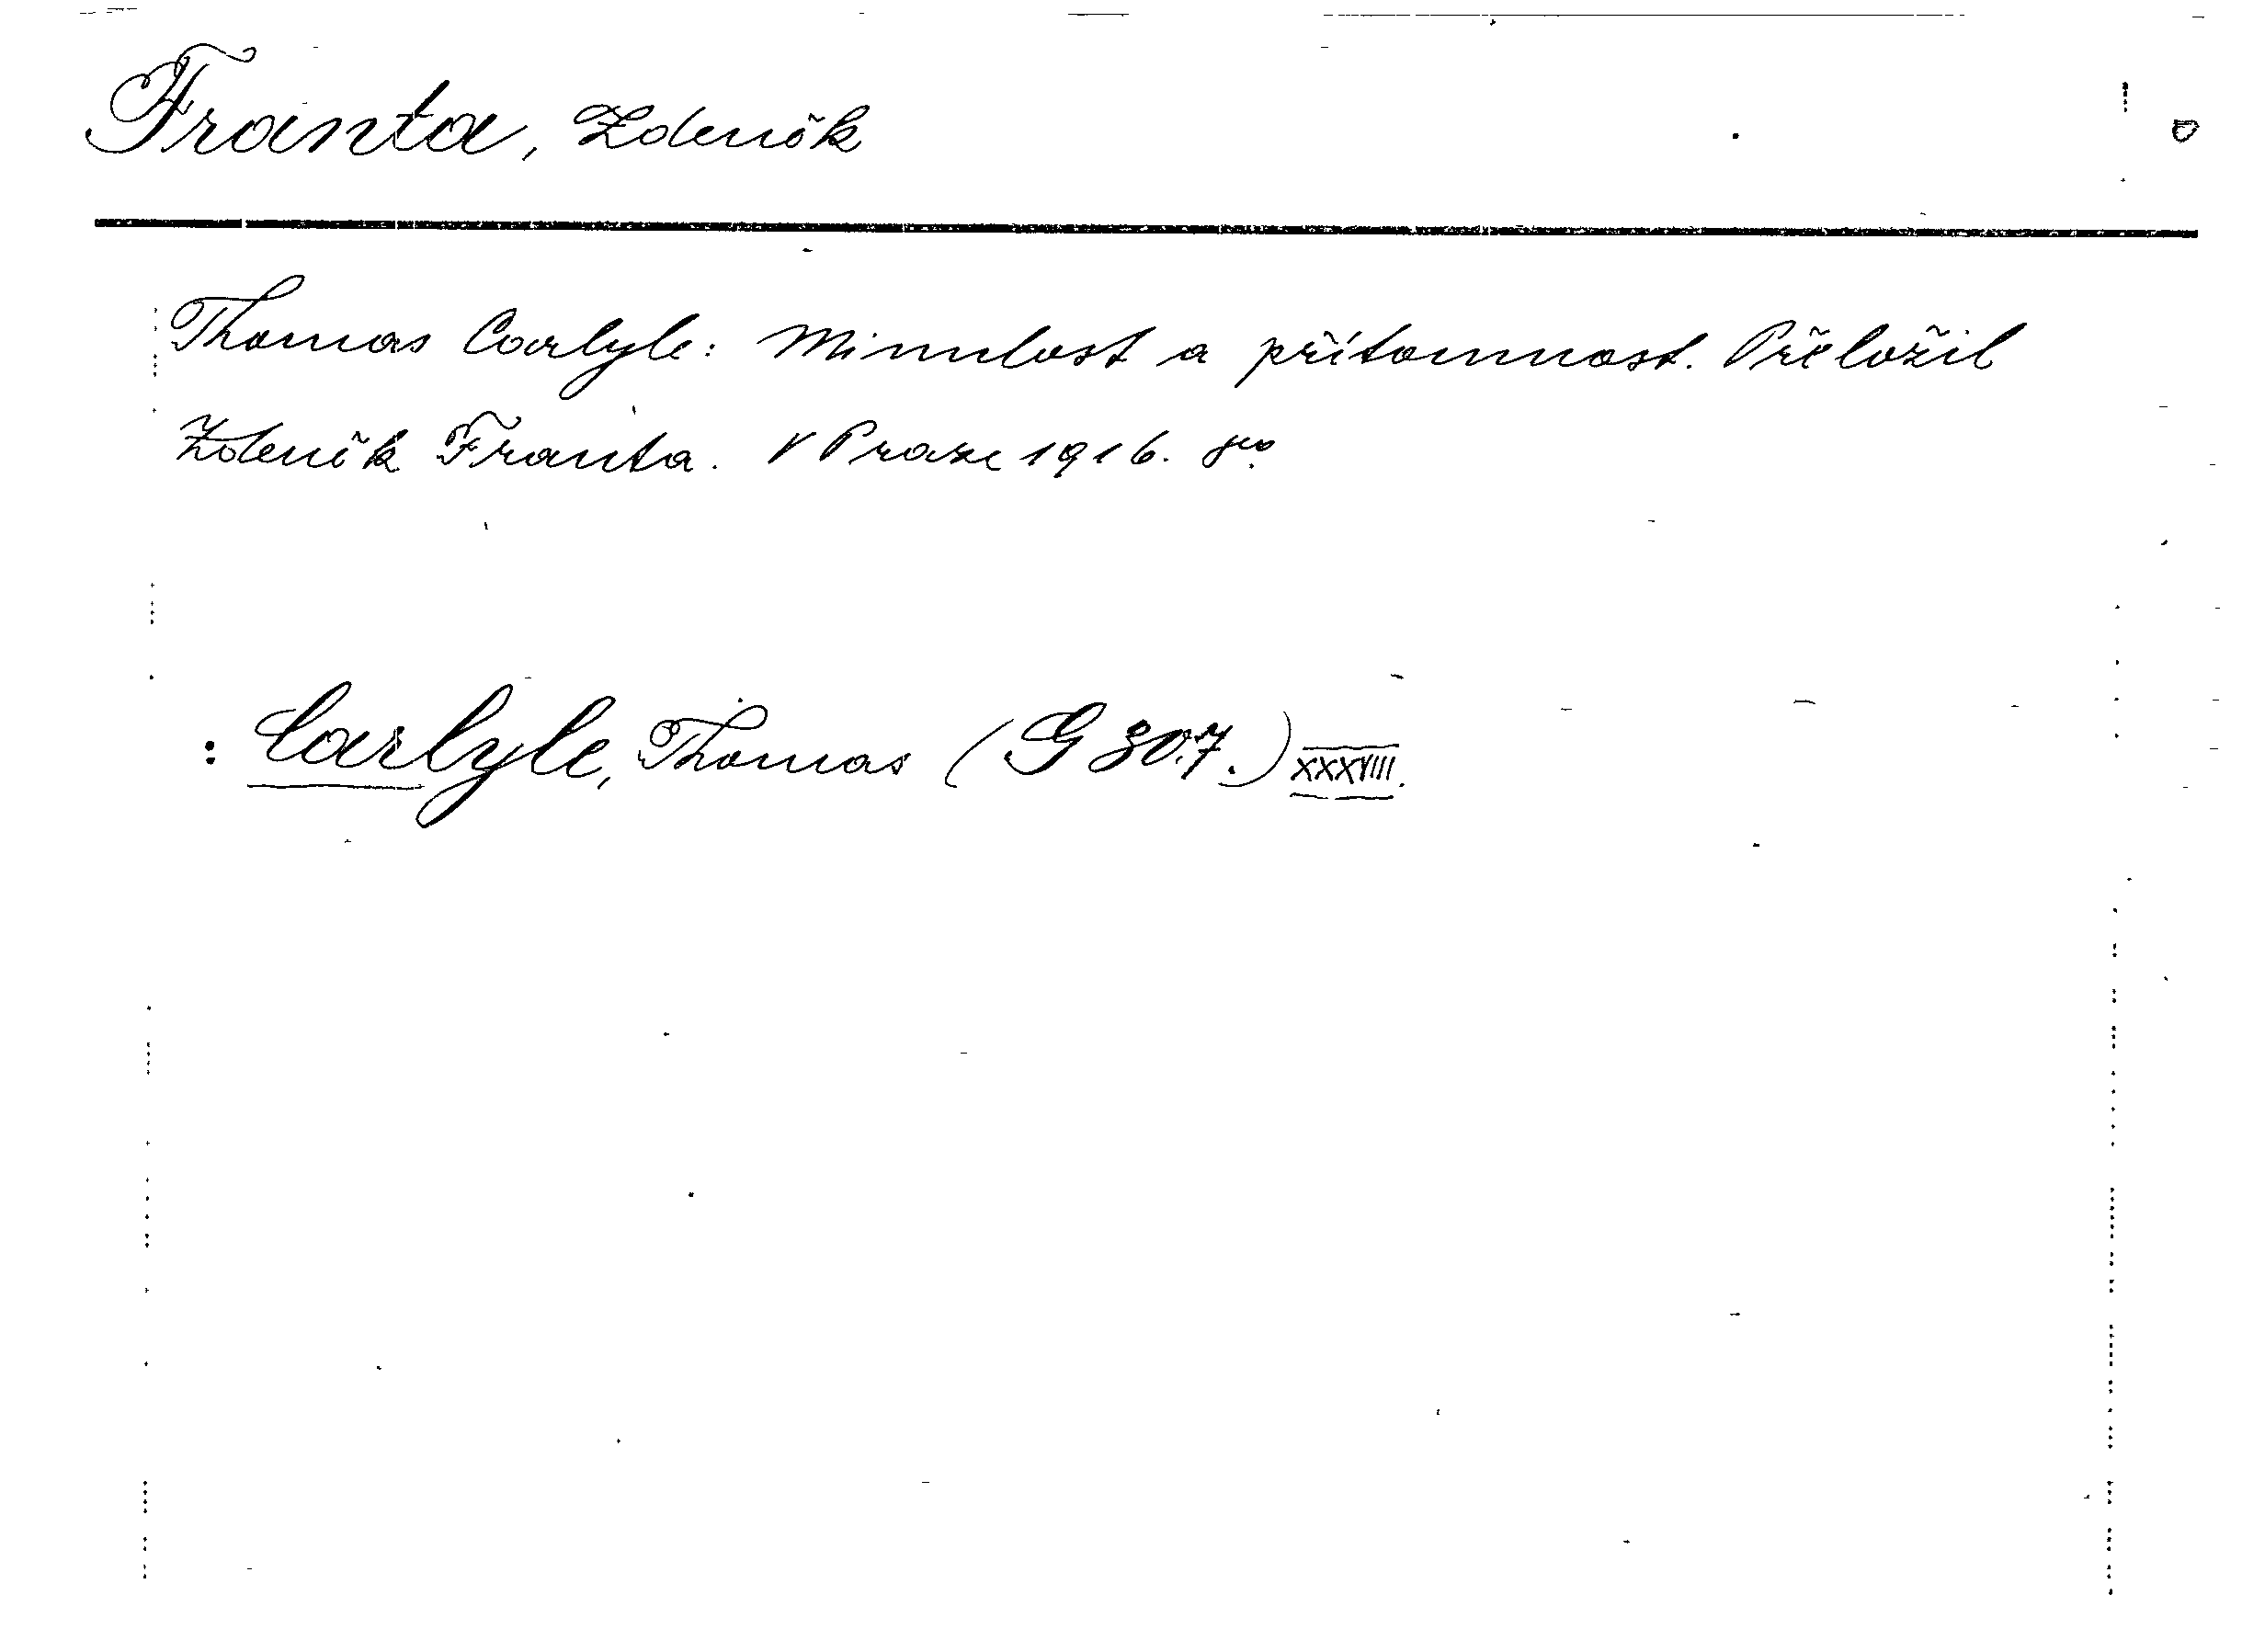 Franta, Zdeněk
Thomas Carlyle: Minulost a přítomnost. Přeložil
Zdeněk Franta. V Praze 1916. 8vo
: Carlyle, Thomas (G 30.7.) XXXVIII.